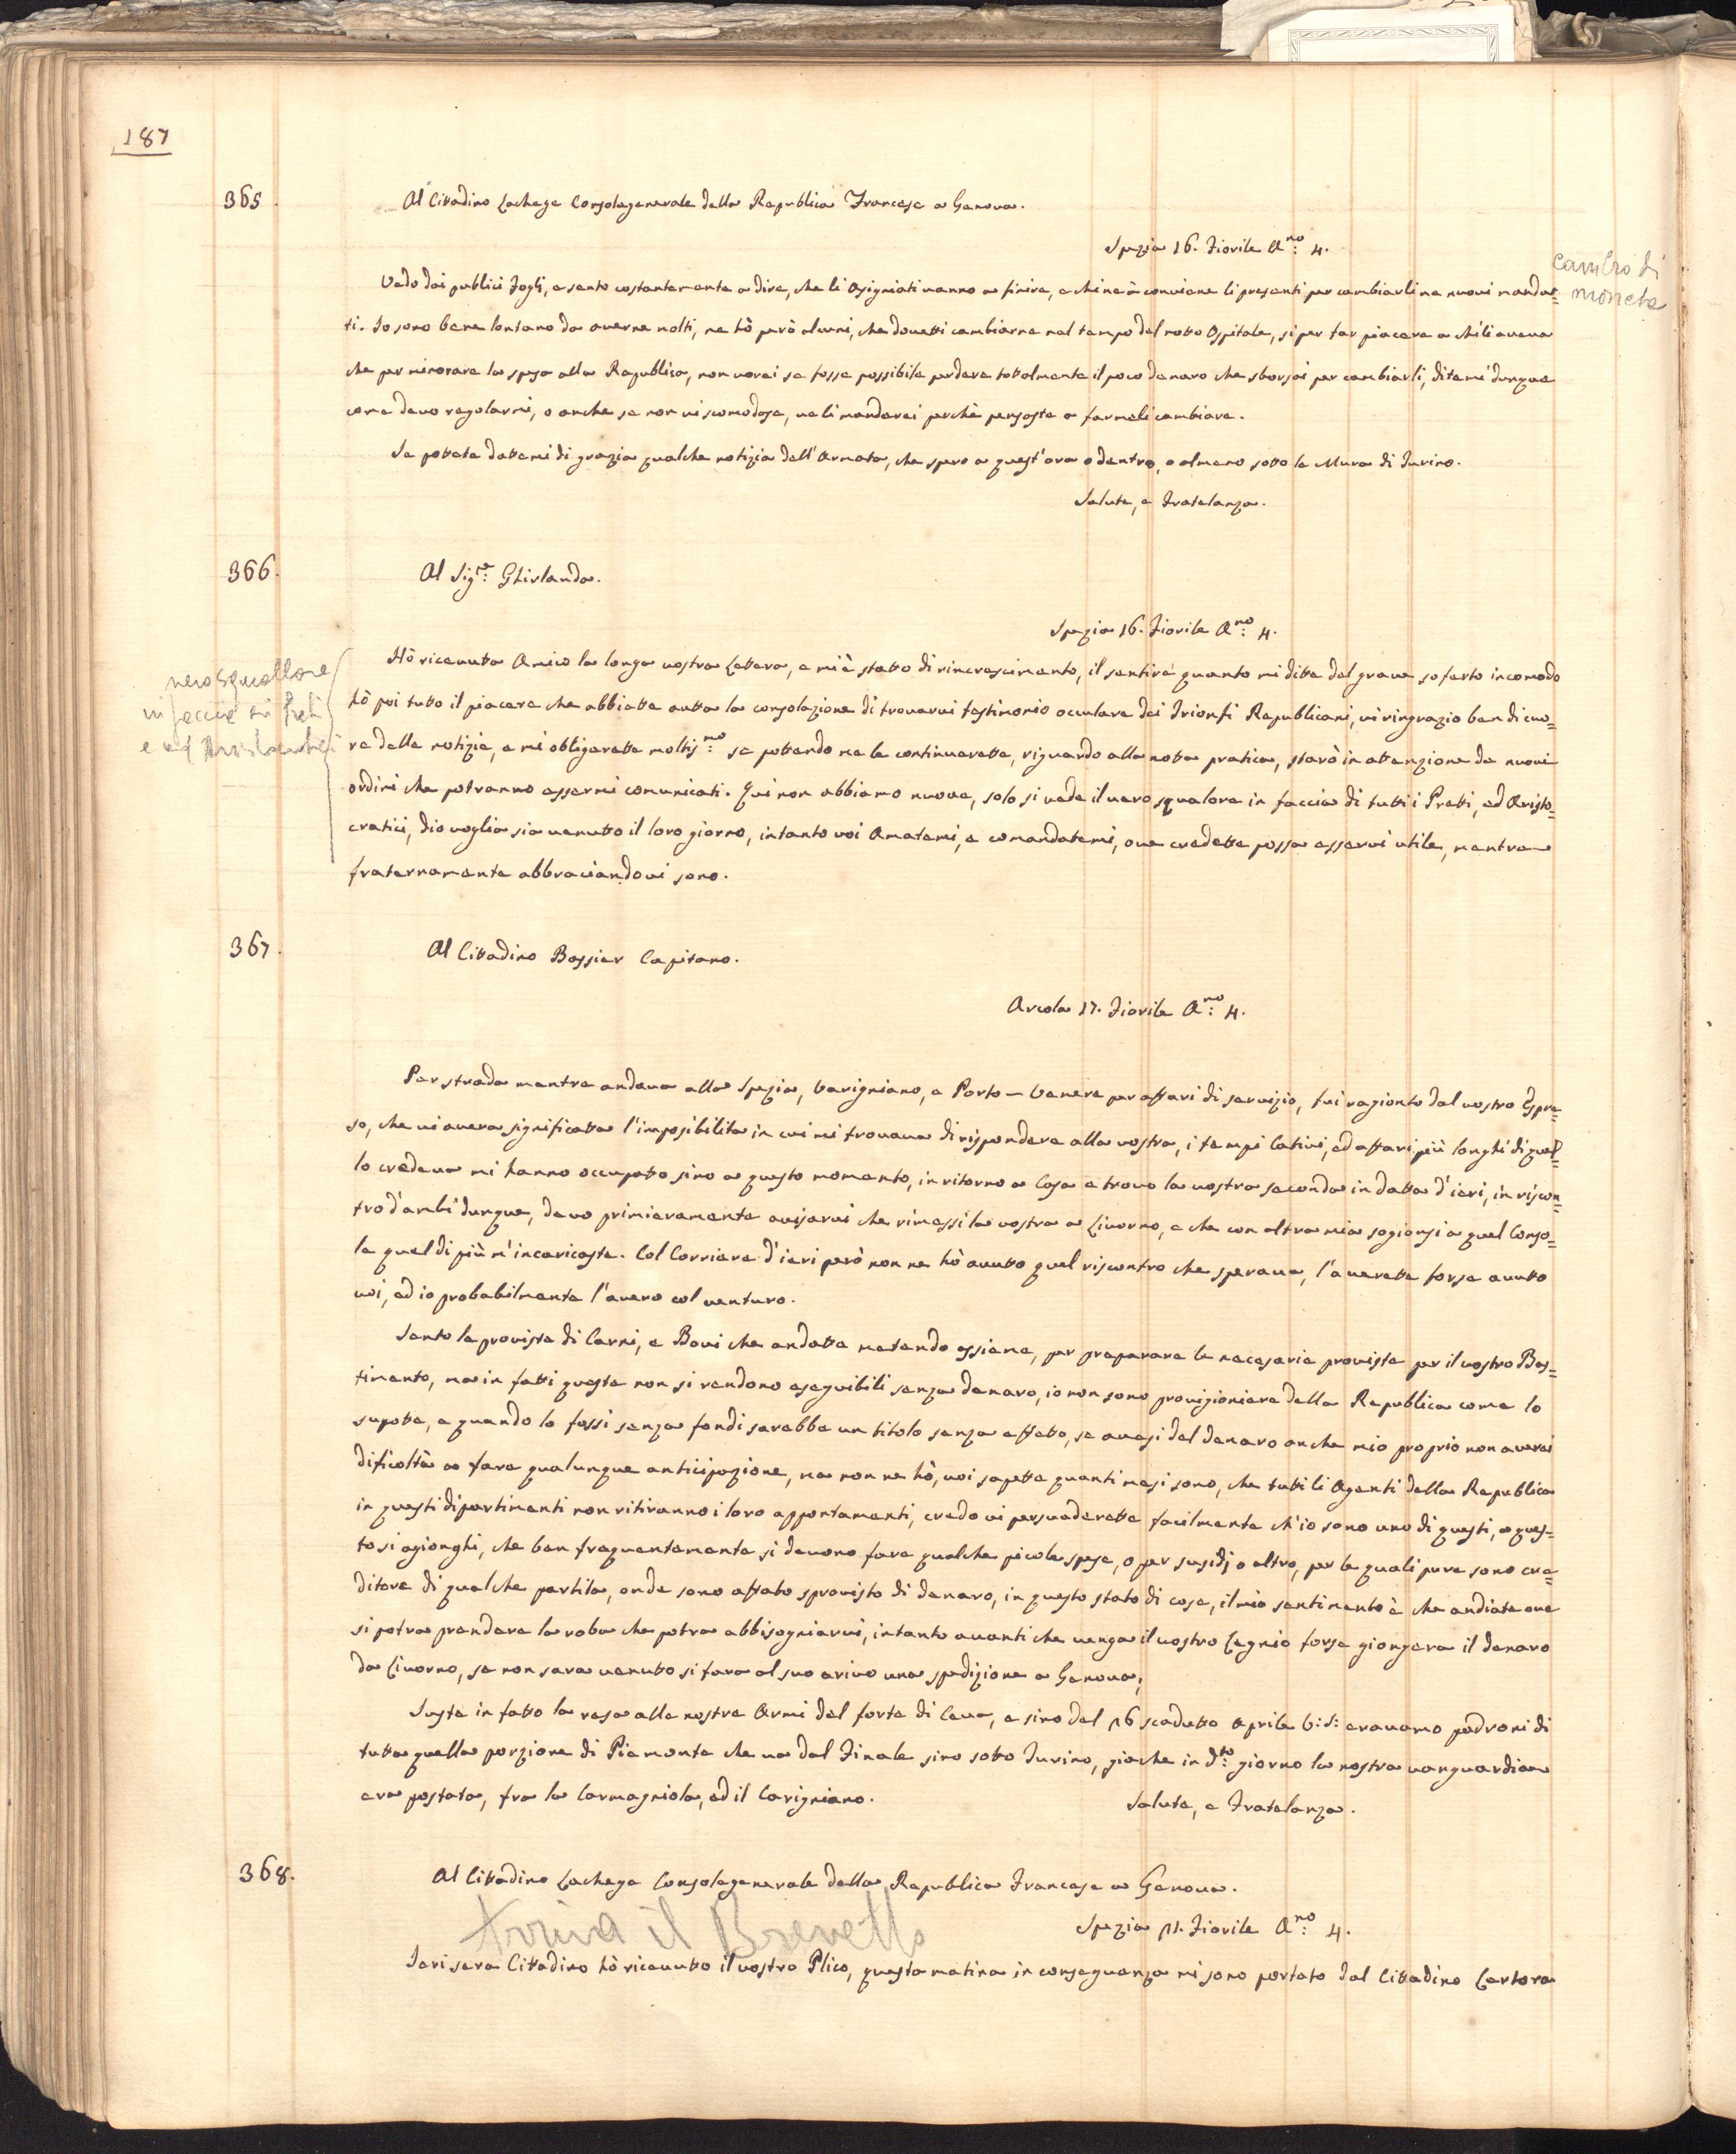 187
365.
Al Cittadino Lachege Consolegenerale della Republica Francese a Genova.
Spezia 16. Fiorile A.no 4.
cambro di
moneta
Vedo dai publici Fogli, e sento costantemente a dire, che li Asigniati vanno a finire, e chi ne à conviene li presenti per cambiarli ne nuovi manda=
ti. Io sono bene lontano da averne molti, ne hò però alcuni, che dovetti cambiarne nel tempo del noto Ospitale, si per far piacere a chi li aveva
che per minorare la spesa alla Republica, non vorei se fosse possibile perdere totalmente il poco denaro che sborsai per cambiarli, ditemi dunque
come devo regolarmi, o anche se non vi scomodase, ve li manderei perchè pensaste a farmeli cambiare.
Se potete datemi di grazia qualche notizia dell'Armata, che spero a quest'ora o dentro, o almeno sotto le Mura di Turino.
Salute, e Fratelanza.
366.
Al Sig.re Ghirlanda.
Spezia 16. Fiorile A.no 4.
nero squallore
in faccie di Preti
e ed Aristocratici
Hò ricevuta Amico la longa vostra Letera, e mi è stato di rincrescimento, il sentire quanto mi dite del grave soferto incomodo
hò poi tuto il piacere che abbiate auta la consolazione di trovarvi testimonio occulare dei Trionfi Republicani, vi ringrazio ben di cuo=
re delle notizie, e mi obligarete moltis.mo se potendo me le continuarete, riguardo alla nota pratica, starò in atenzione de nuovi
ordini che potranno essermi comunicati. Qui non abbiamo nuove, solo si vede il nero squalore in faccia di tuti i Preti, ed Aristo=
cratici, dio voglia sia venuto il loro giorno, intanto voi Amatemi, e comandatemi, ove credete possa esservi utile, mentre
fraternamente abbraciandovi sono.
367.
Al Cittadino Bessier Capitano.
Arcola 17. Fiorile A.no 4.
Per strada mentre andava alla Spezia, Varigniano, e Porto-Venere per affari di servizio, fui ragionto dal vostro Espre=
so, che vi averà significata l'imposibilita in cui mi trovava di rispondere alla vostra, i tempi Cativi, ed affari più longhi di quel=
lo credeva mi hanno occupato sino a questo momento, in ritorno a Casa e trovo la vostra seconda in data d'ieri, in riscon=
tro d'ambi dunque, devo primieramente avisarvi che rimessi la vostra a Livorno, e che con altra mia sogionsi a quel Conso=
le quel di più m'incaricaste. Col Corriere d'ieri però non ne hò avuto quel riscontro che sperava, l'averete forse avuto
voi, ed io probabilmente l'avero col venturo.
Sento le proviste di Carni, e Bovi che andate metendo assieme, per preparare le necesarie proviste per il vostro Bas=
timento, ma in fatti queste non si rendono eseguibili senza denaro, io non sono provigioniere della Republica come lo
supote, e quando lo fossi senza fondi sarebbe un titolo senza effeto, se avesi del denaro anche mio proprio non averei
dificoltà a fare qualunque anticipazione, ma non ne hò, voi sapete quanti mesi sono, che tuti li Agenti della Republica
in questi dipartimenti non ritiranno i loro appontamenti, credo vi persuaderete facilmente ch'io sono uno di questi, a ques=
to si agionghi, che ben frequentemente si devono fare qualche picole spese, o per susidj o altro, per le quali pure sono cre=
ditore di qualche partita, onde sono affato sprovisto di denaro, in questo stato di cose, il mio sentimento è che andiate ove
si potra prendere la roba che potra abbisogniarvi, intanto avanti che venga il vostro Legnio forse giongera il denaro
da Livorno, se non sara venuto si fara al suo arivo una spedizione a Genova;
Suste in fato la resa alle nostre Armi del forte di Ceva, e sino del 26 scaduto Aprile V: S: eravamo padroni di
tuta quella porzione di Piemonte che va dal Finale sino soto Turino, gia che in d.to giorno la nostra vanguardia
era postata, fra la Carmagniola, ed il Carigniano.
Salute, e Fratelanza.
368.
Al Cittadino Lachege Consolegenerale della Republica Francese a Genova.
Arriva il Brevetto
Spezia 21. Fiorile A.no 4.
Ieri sera Cittadino hò ricevuto il vostro Plico, questa matina in conseguenza mi sono portato dal Cittadino Cartora